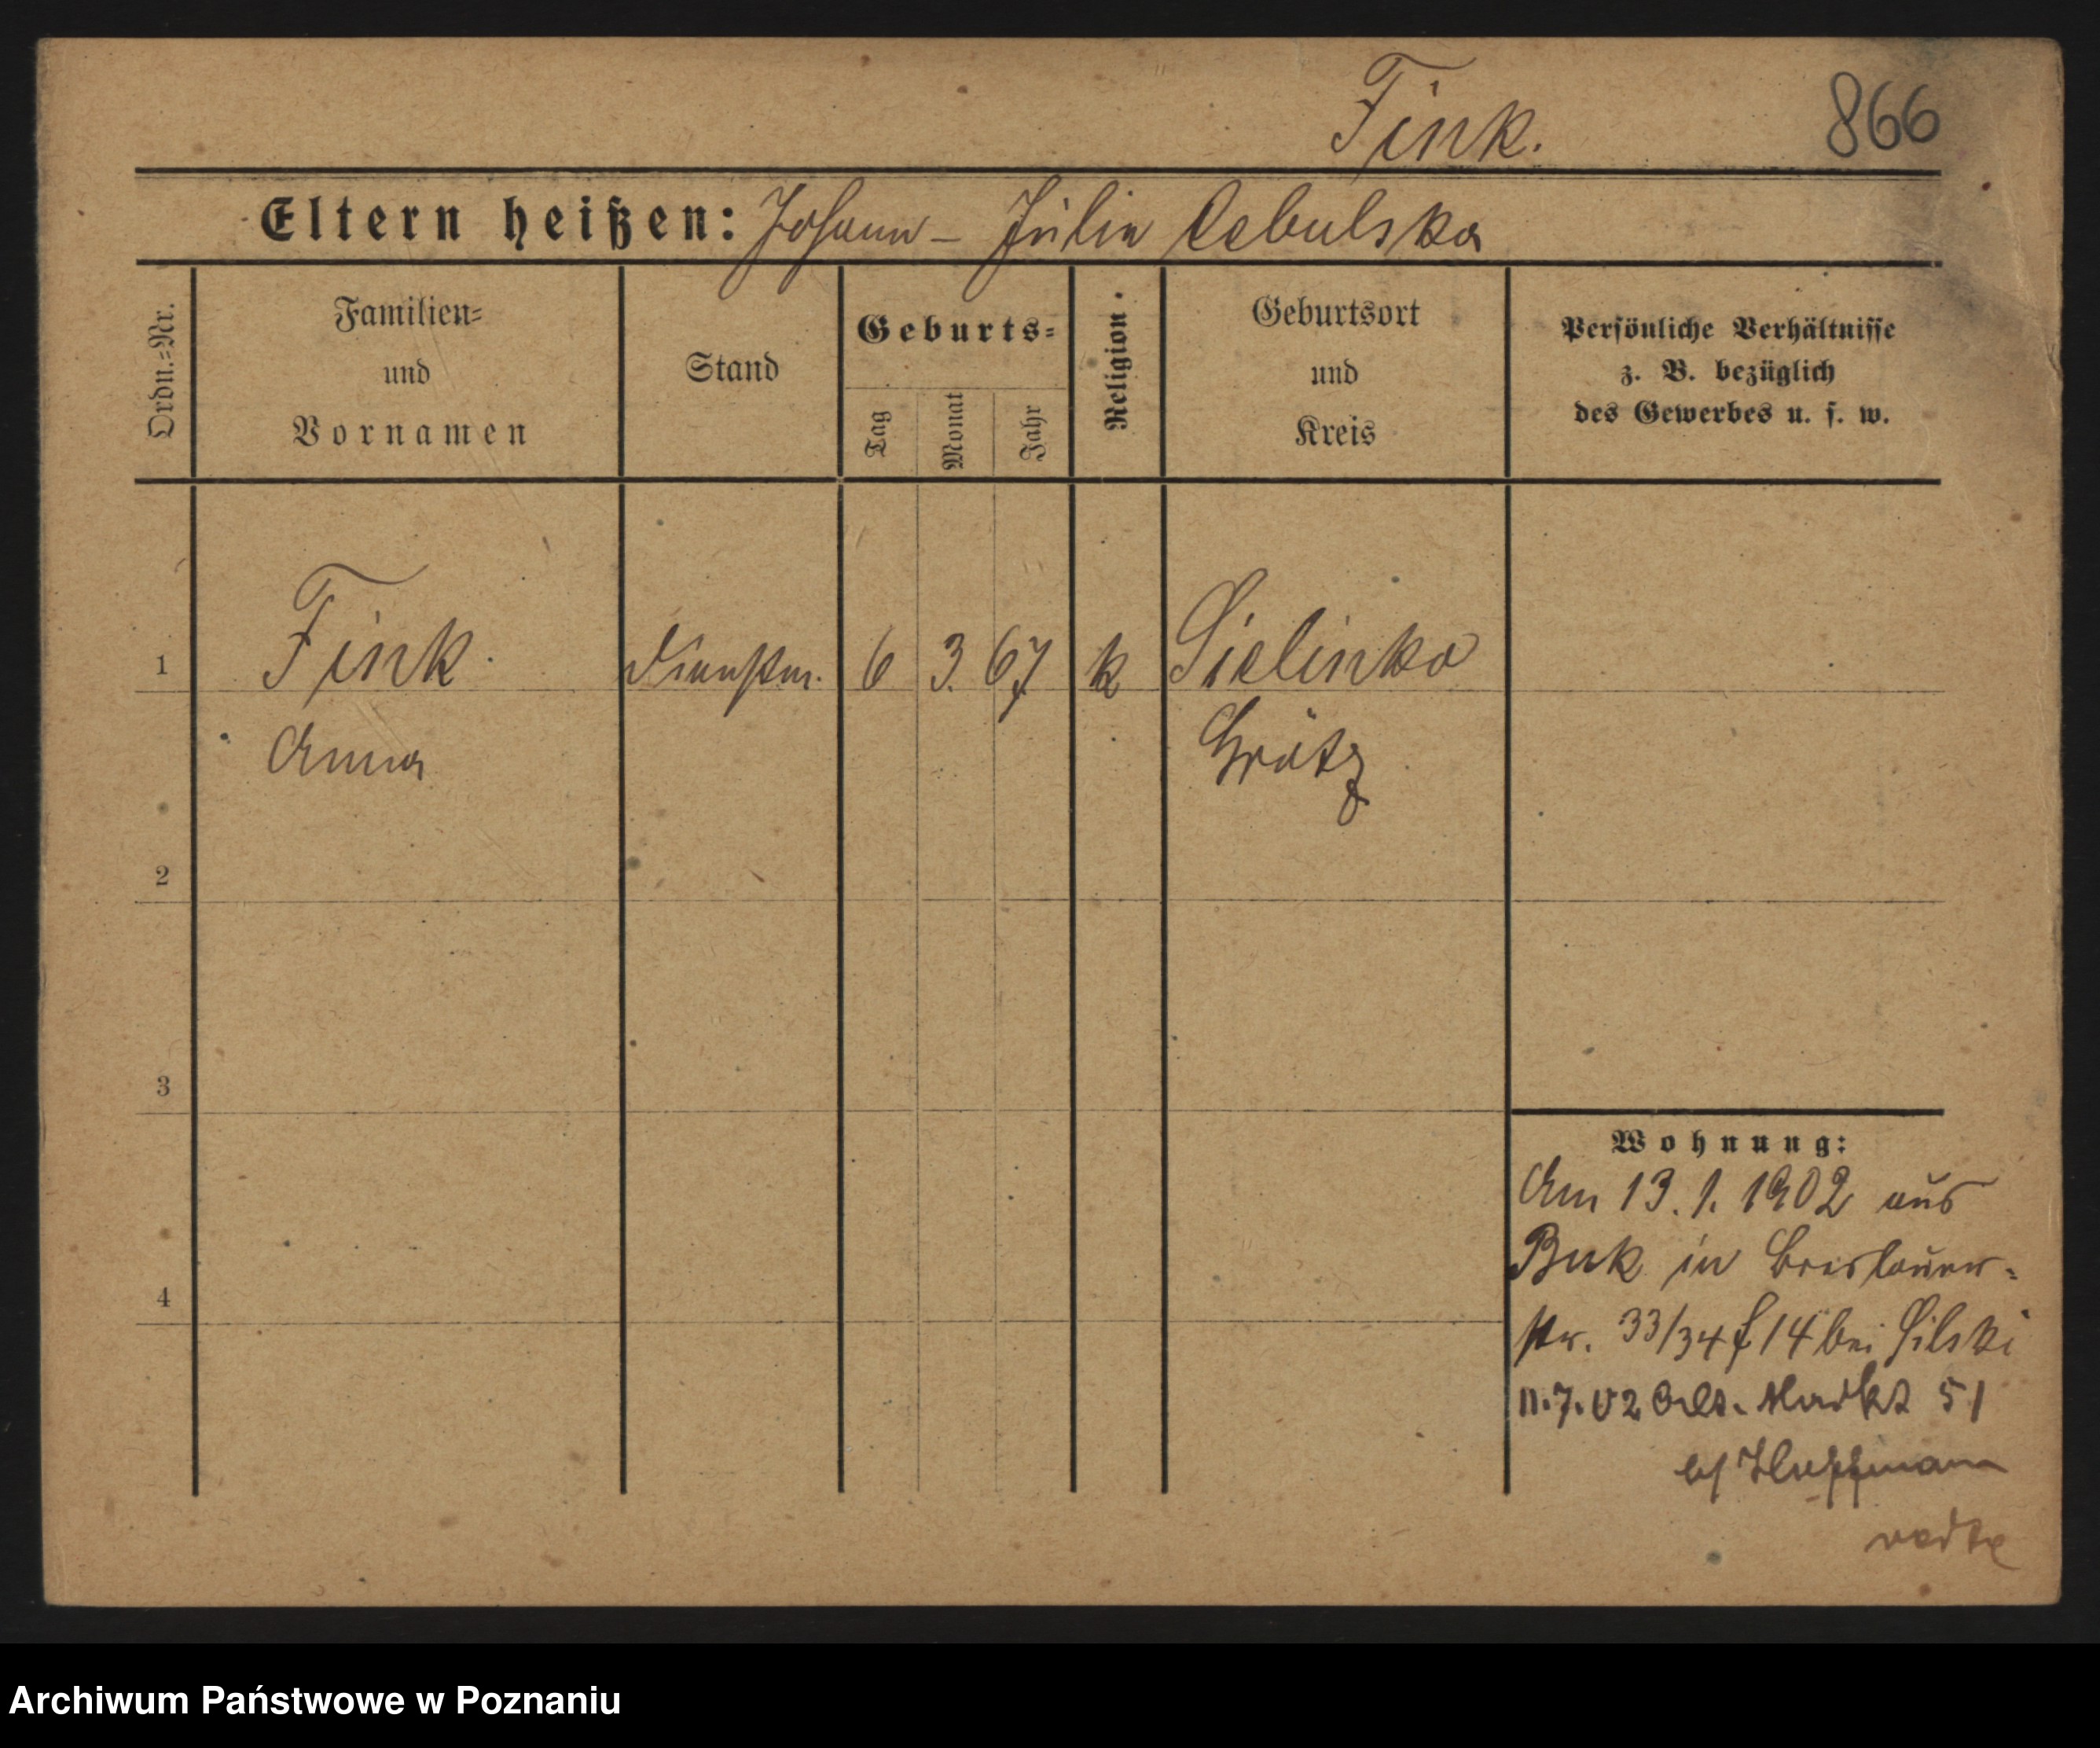 Fink.
866
Eltern heißen: Johann – Julia Cebulska
Ordn.=Nr.
Familien=
und
Vornamen
Stand
Geburts=
Tag
Monat
Jahr
Religion.
Geburtsort
und
Kreis
Persönliche Verhältnisse
z. B. bezüglich
des Gewerbes u. s. w.
1
Fink.
Dienstm.
6
3.
67
k
Sielinko
Anna
Grätz
2
3
4
Wohnung:
Am 13.1.1902 aus
Buk in Breslauer=
str. 33/34 14 bei
11.7.02 Alt. Markt 51
b/ Hoffmann
Archiwum Państwowe w Poznaniu